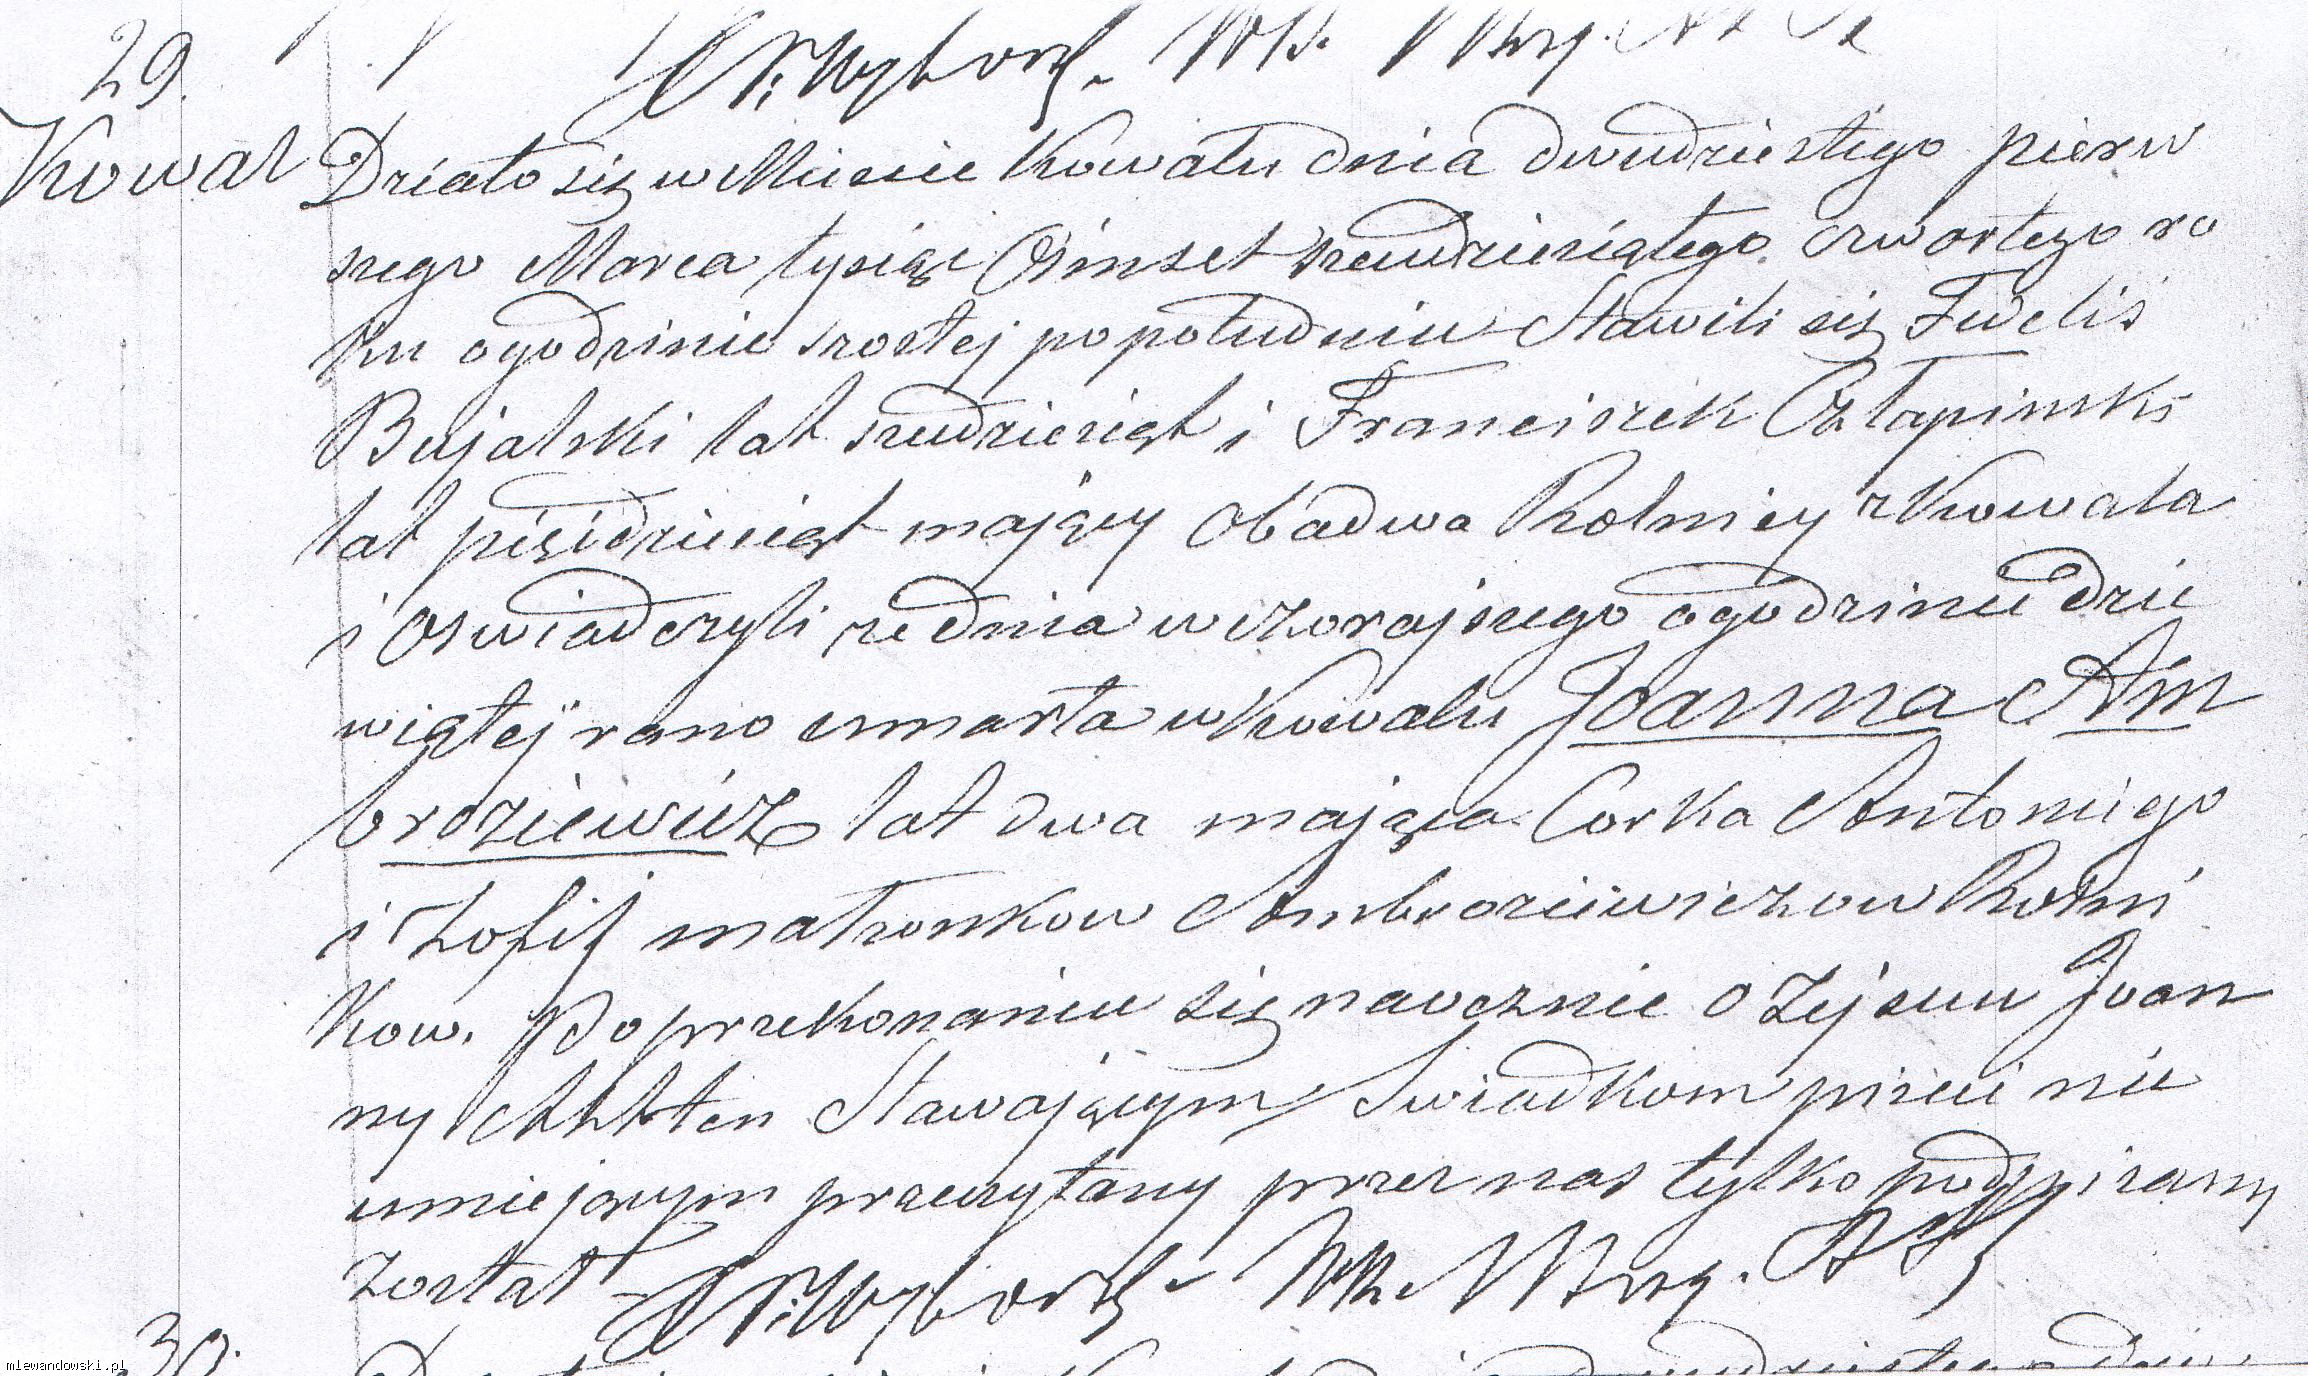 29.
Kowal
Działo się w Mieście Kowalu dnia dwudziestego pierw
szego Marca tysiąc Ośmset szesdziesiątego czwartego ro
ku o godzinie szostej popołudniu Stawili się Felis
Bujalski lat szesdziesiąt i Franciszek Człapinski
lat pięcdziesiąt mający obadwa Rolnicy z Kowala
i Oswiadczyli że dnia wczorajszego o godzinie dzie
wiątej rano umarła w Kowalu Joanna Am
broziewicz lat dwa mająca Corka Antoniego
i Zofij małzonkow Ambroziewiczow Rolni
kow. Po przekonaniu się naocznie o zejsciu Joan
ny Akt ten Stawającym Swiadkom pisać nie
umiejącym przeczytany przez nas tylko podpisany
został
30.
mlewandowski.pl